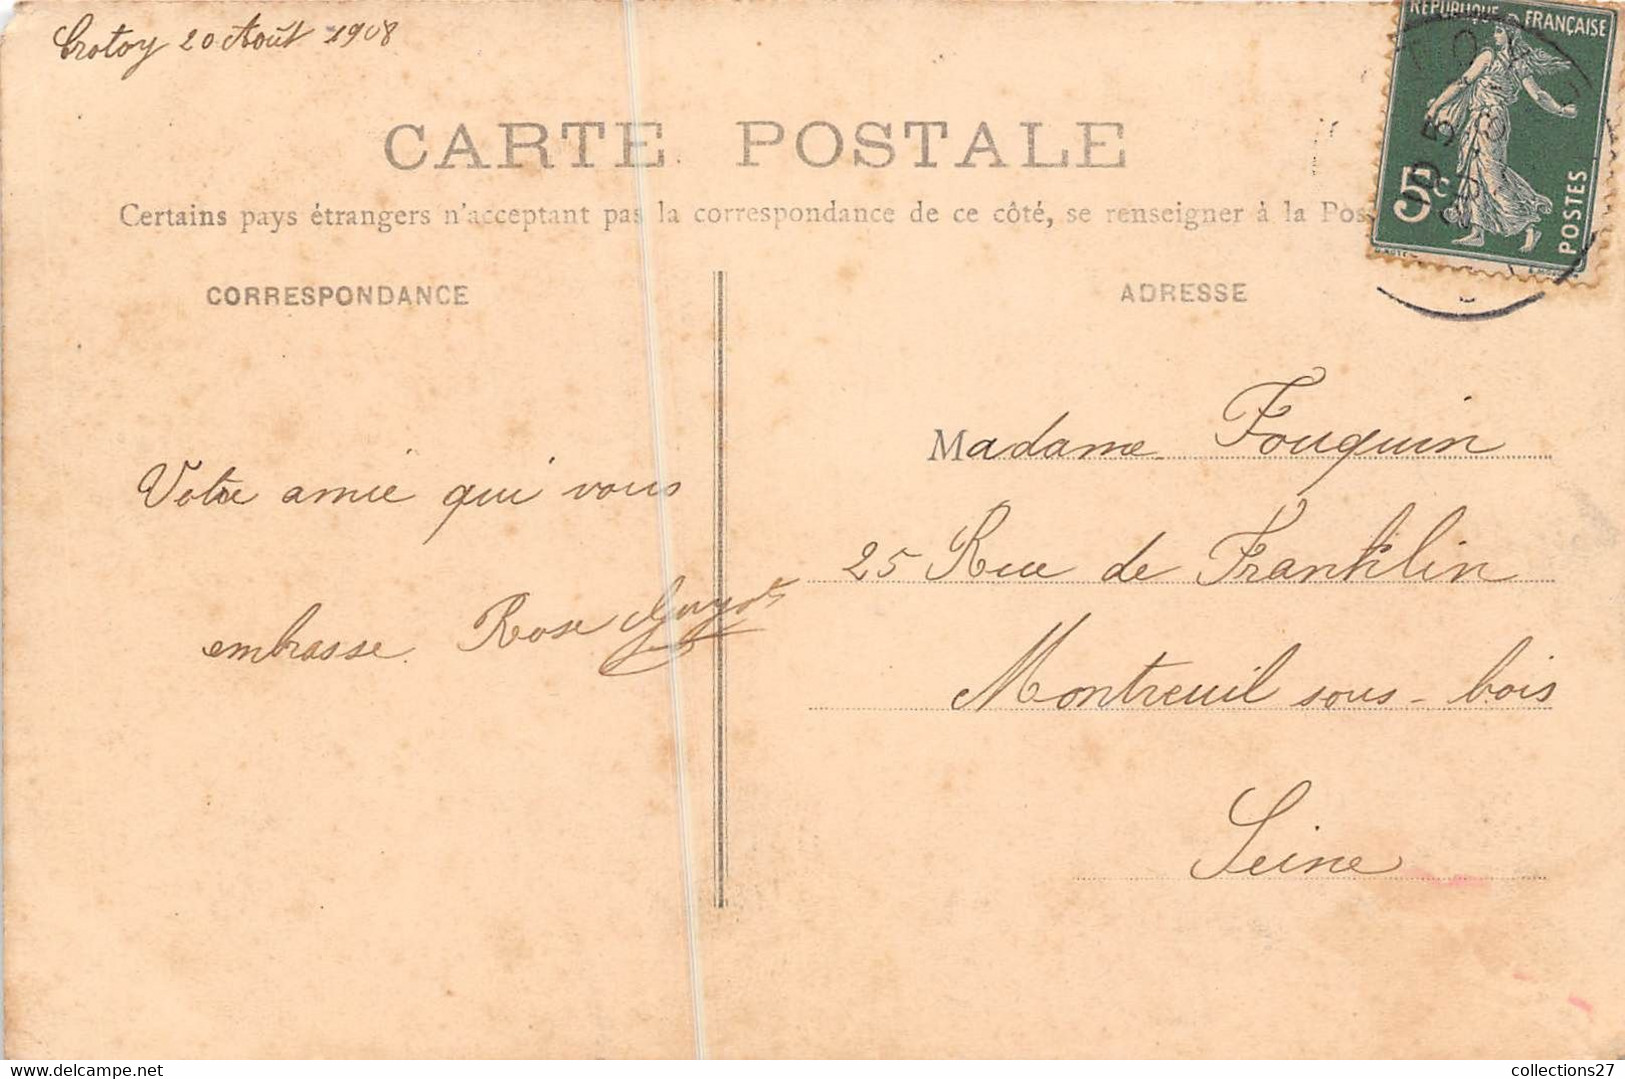 Crotoy 20 Août 1908
RÉPUBLIQUE FRANÇAISE
5c
POSTES
CARTE POSTALE
Certains pays étrangers n'acceptant pas la correspondance de ce côté, se renseigner à la Pos
CORRESPONDANCE
ADRESSE
Votre amie qui vous
embrasse. Rose Guyot
Madame Fouquin
25 Rue de Franklin
Montreuil sous-bois
Seine
delcampe.net
collections27